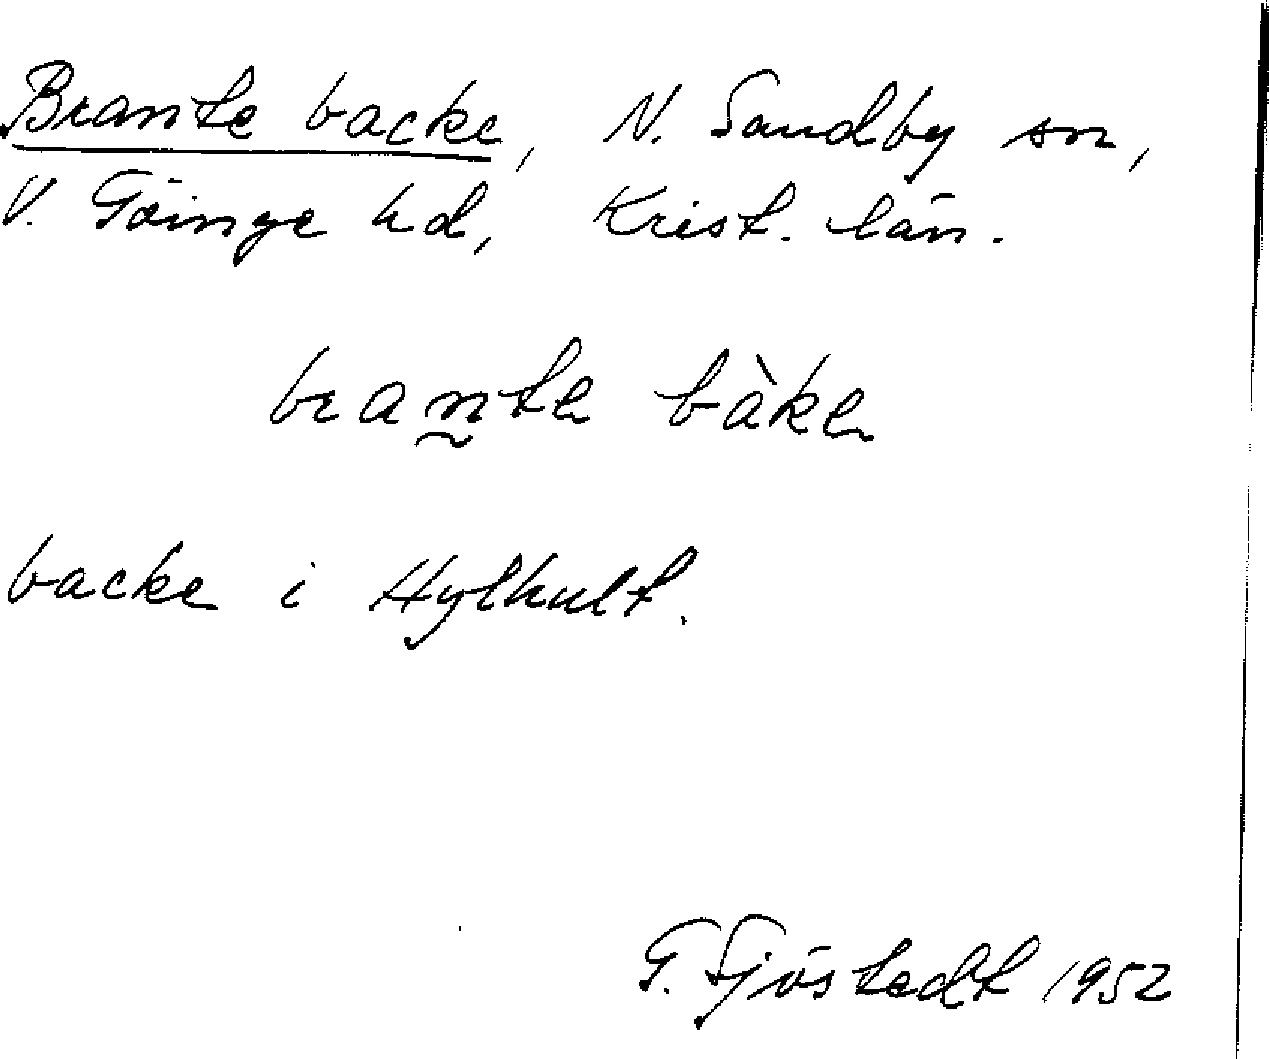 Brante backe, N. Sandby sn,
V. Göinge hd, Krist. län.
bran̰te bàke
backe i Hylhult.
G. Sjöstedt 1952